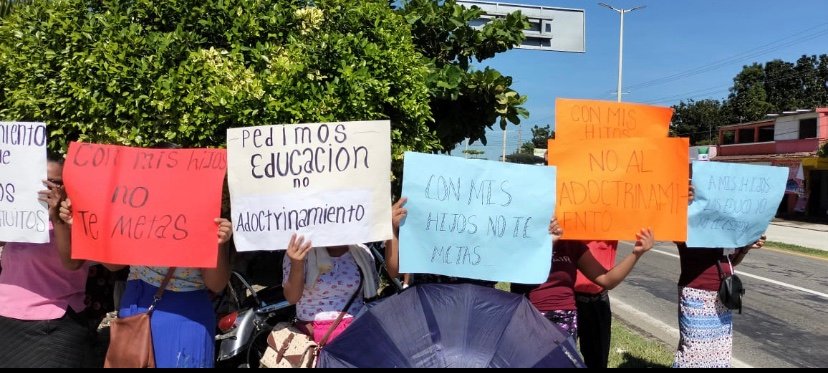 CON MIS HIJOS
NO
TE METAS
PEDIMOS
EDUCACION
NO
ADOCTRINAMIENTO
CON MIS
HIJOS NO TE
METAS
CON MIS
HIJOS
NO AL
ADOCTRINAMI
ENTO
A MIS HIJOS
LOS EDUCO YO